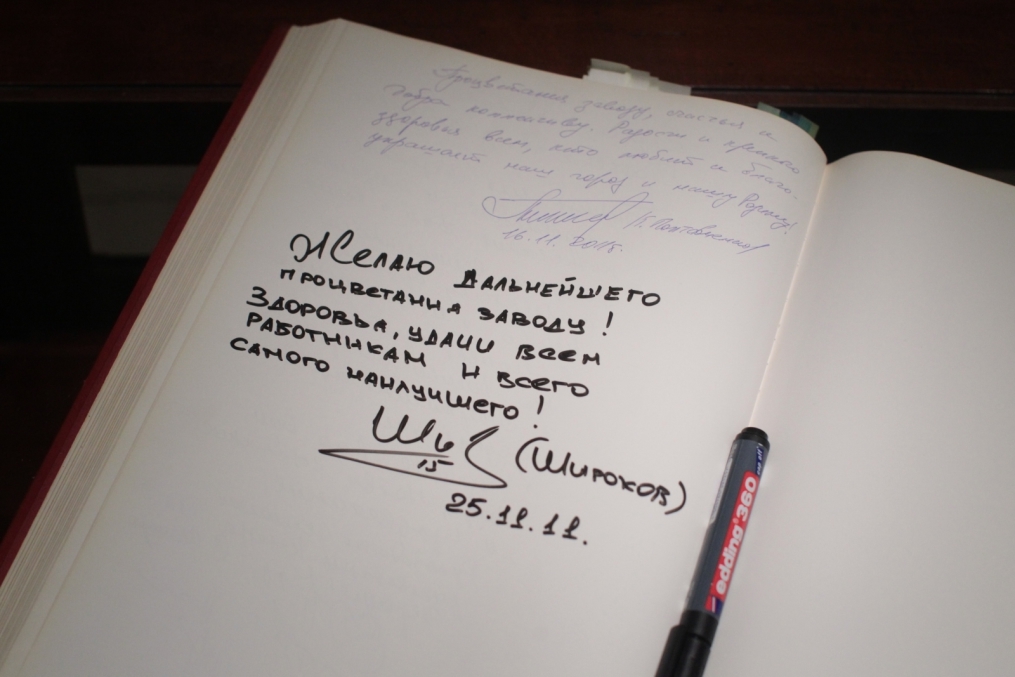 Процветания заводу, счастья и
добра коллективу. Радости и крепкого
здоровья всем, кто любит и благо-
украшает наш город и нашу Родину!
/Г. Полтавченко/
16.11.201г.
Желаю дальнейшего
процветания заводу!
Здоровья, удачи всем
работникам и всего
самого наилучшего!
Ши
15
(Широков)
25.11.11.
edding 360